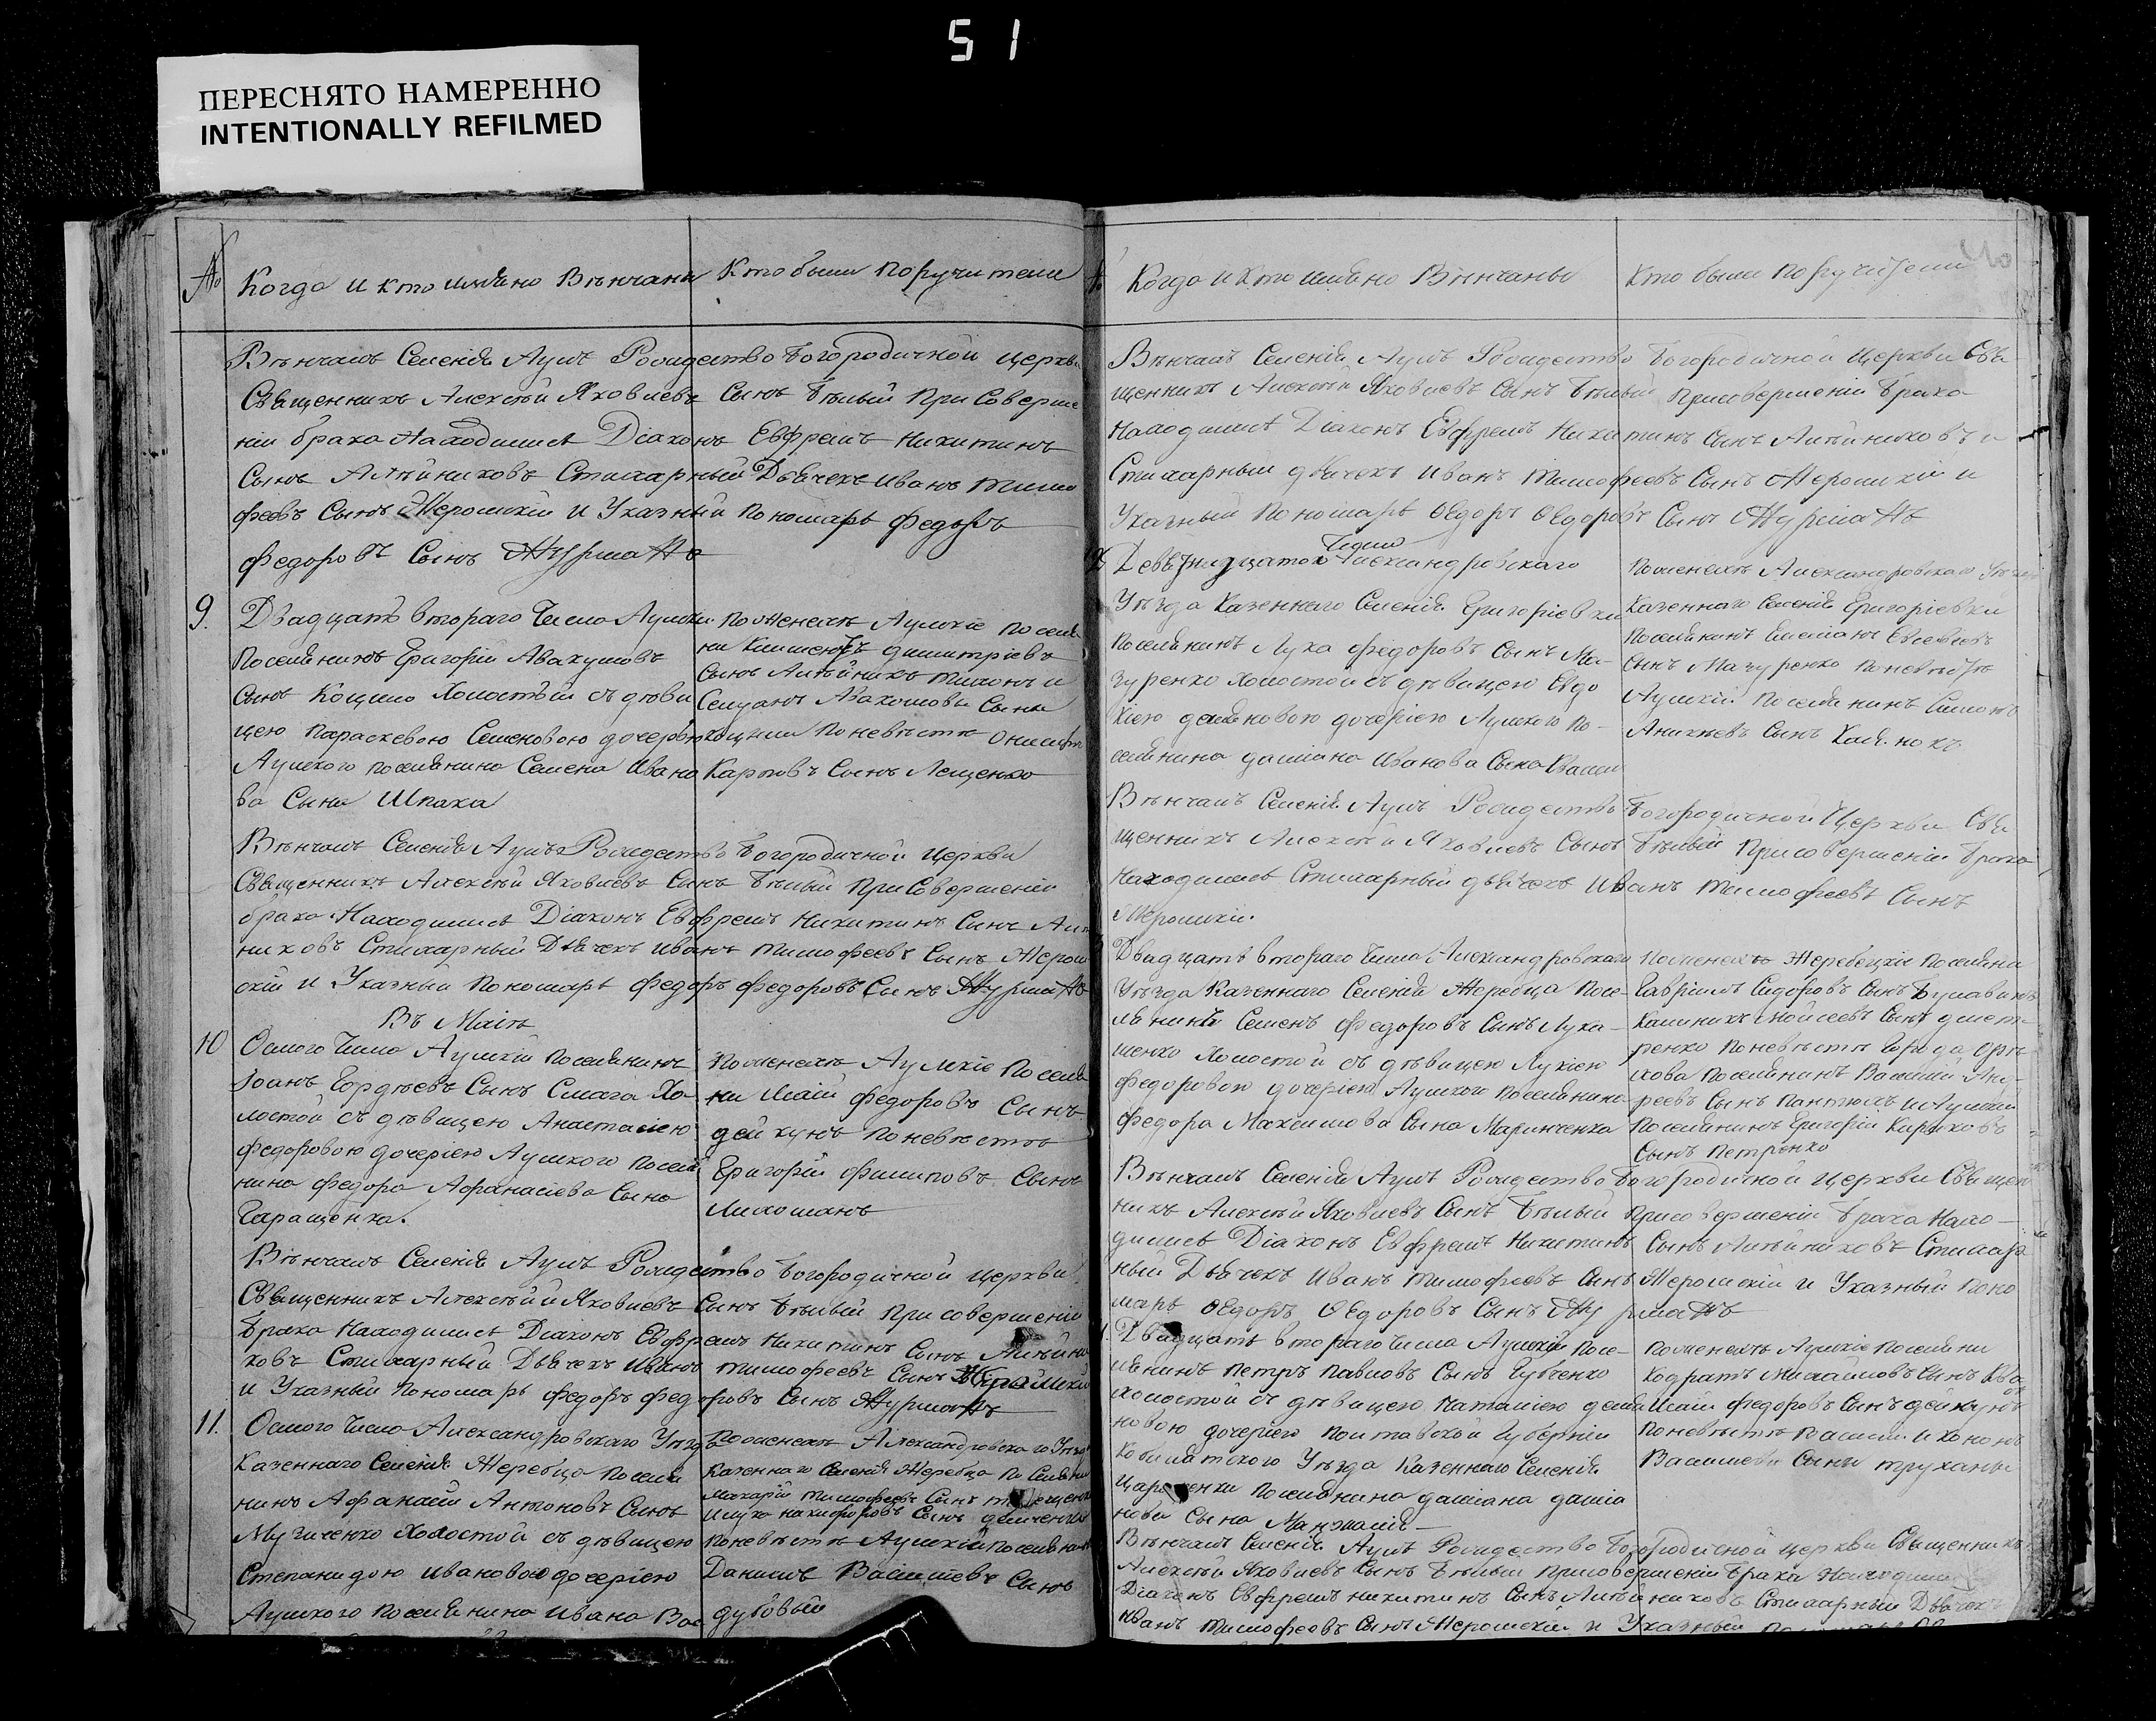 51
ПЕРЕСНЯТО НАМЕРЕННО
INTENTIONALLY REFILMED
№
Когда и кто имяно Вѣнчаны
Кто были поручители
Вѣнчалъ Селенія Аулъ Рождество Богородичной Церкви
Священникъ Алексѣй Яковлевъ Сынъ Бѣлый при Соверше
ніи брака Находились Діаконъ Евфремъ Никитинъ
Сынъ Алѣйниковъ Стихарный Дьячекъ Иванъ Тимо
феевъ Сынъ Жеромскій и Указный Пономарь Федоръ
Федоровъ Сынъ
9.
Двадцать втораго Числа Аулскій
Поселянинъ Григорій Авакумовъ
Сынъ Кощио Холостый съ дѣви
цею Параскевою Семеновою дочерью
Аулского поселянина Семена Ивано
ва Сына Шпака
По женихѣ Аулскіе поселя
ни Климентъ Димитріевъ
Сынъ Алѣйникъ и
Сынъ
по невѣстѣ
Карповъ Сынъ Лещенко
Вѣнчалъ Селенія Аулъ Рождество Богородичной Церкви
Священникъ Алексѣй Яковлевъ Сынъ Бѣлый при Совершеніи
брака Находились Діаконъ Евфремъ Никитинъ Сынъ Алѣ
никовъ Стихарный Дьячекъ Иванъ Тимофеевъ Сынъ Жером
скій и Указный Пономарь Федоръ Федоровъ Сынъ
Въ Маіѣ
10
Осмого Числа Аулскій поселянинъ
Іоанъ Гордѣевъ Сынъ Смага Хо
лостой съ дѣвицею Анастасіею
Федоровою дочеріею Аулского посел
нина Федора Афанасіева Сына
Гаращенка.
По женихѣ Аулскіе поселя
ни Исаій Федоровъ Сынъ
Дейкунъ по невѣстѣ
Григорій Филиповъ Сынъ
Лихошанъ
Вѣнчалъ Селенія Аулъ Рождество Богородичной Церкви
Священникъ Алексѣй Яковлевъ Сынъ Бѣлый при совершеніи
брака Находились Діаконъ Евфремъ Никитинъ Сынъ Алѣйни
ковъ Стихарный Дьячекъ Иванъ Тимофеевъ Сынъ Жеромскій
и Указный Пономарь Федоръ Федоровъ Сынъ
11.
Осмого Числа Александровскаго Уѣзда
Казеннаго Селенія Жеребца посели
нинъ Афанасій Антоновъ Сынъ
Музиченко Холостой съ дѣвицею
Степанидою Ивановою дочеріею
Аулского поселянина Ивана Вас
По женихѣ Александровскаго Уѣзда
Казеннаго Селенія Жеребца поселяни
Макарій Тимофеевъ Сынъ
и Лука Никифоровъ Сынъ
по невѣстѣ Аулскій поселянинъ
Данило Василіевъ Сынъ
Дубовый
Когда и кто имяно Вѣнчаны
Кто были поручители
Вѣнчалъ Селенія Аулъ Рождество Богородичной Церкви Свя
щенникъ Алексѣй Яковлевъ Сынъ Бѣлый при совершеніи брака
Находились Діаконъ Евфремъ Никитинъ Сынъ Алѣйниковъ и
Стихарный дьячекъ Иванъ Тимофеевъ Сынъ Жеромскій и
Указный Пономарь Ѳедоръ Ѳедоровъ Сынъ
Александровскаго
Уѣзда Казеннаго Селенія Григоріевки
Поселянинъ Лука Федоровъ Сынъ Ма-
зуренко Холостой съ дѣвицею Евдо
кіею дочеріею Аулского по-
селянина Даміана Иванова Сына
По женихѣ Александровскаго Уѣзда
Казеннаго Селенія Григоріевки
Поселянинъ
Сынъ Мазуренко по невѣстѣ
Аулскій поселянинъ
Сынъ
Вѣнчалъ Селенія Аулъ Рождество Богородичной Церкви Свя
щенникъ Алексѣй Яковлевъ Сынъ Бѣлый при совершеніи брака
Находились Стихарный дьячекъ Иванъ Тимофеевъ Сынъ
Жеромскій.
Двадцать втораго Числа Александровскаго
Уѣзда Казеннаго Селенія Жеребца посе-
лянинъ Семенъ Федоровъ Сынъ Лука-
шенко Холостой съ дѣвицею Лукіею
Федоровою дочеріею Аулского поселянина
Федора Максимова Сына Маринченка
По женихѣ Жеребецкіе поселяни
Гавріилъ Сидоровъ Сынъ
Калиникъ Мойсеевъ Сынъ Дмит-
ренко по невѣстѣ города Орѣ
хова поселянинъ Василій Анд-
реевъ Сынъ и Аулскій
поселянинъ Григорій
Сынъ Петренко
Вѣнчалъ Селенія Аулъ Рождество Богородичной Церкви Священ
никъ Алексѣй Яковлевъ Сынъ Бѣлый при совершеніи брака Нахо-
дились Діаконъ Евфремъ Никитинъ Сынъ Алѣйниковъ Стихар
ный Дьячекъ Иванъ Тимофеевъ Сынъ Жеромскій и Указный Поно
марь Ѳедоръ Ѳедоровъ Сынъ
Двадцать втораго Числа Аулскій посе-
лянинъ Петръ Павловъ Сынъ Губченко
холостой съ дѣвицею Наталіею Демія
новою дочеріею Полтавской Губерніи
Кобилятского Уѣзда Казеннаго Селенія
поселянина Даміана Даміа
нова Сына
По женихѣ Аулскіе поселяни
Кодратъ Михайловъ Сынъ
Исаій Федоровъ Сынъ Дейкунъ
по невѣстѣ Василій и Кононъ
Василіеви Сыни Труханы
Вѣнчалъ Селенія Аулъ Рождество Богородичной Церкви Священникъ
Алексѣй Яковлевъ Сынъ Бѣлый при совершеніи брака Находились
Діаконъ Евфремъ Никитинъ Сынъ Алѣйниковъ Стихарный Дьячекъ
Иванъ Тимофеевъ Сынъ Жеромскій и Указный